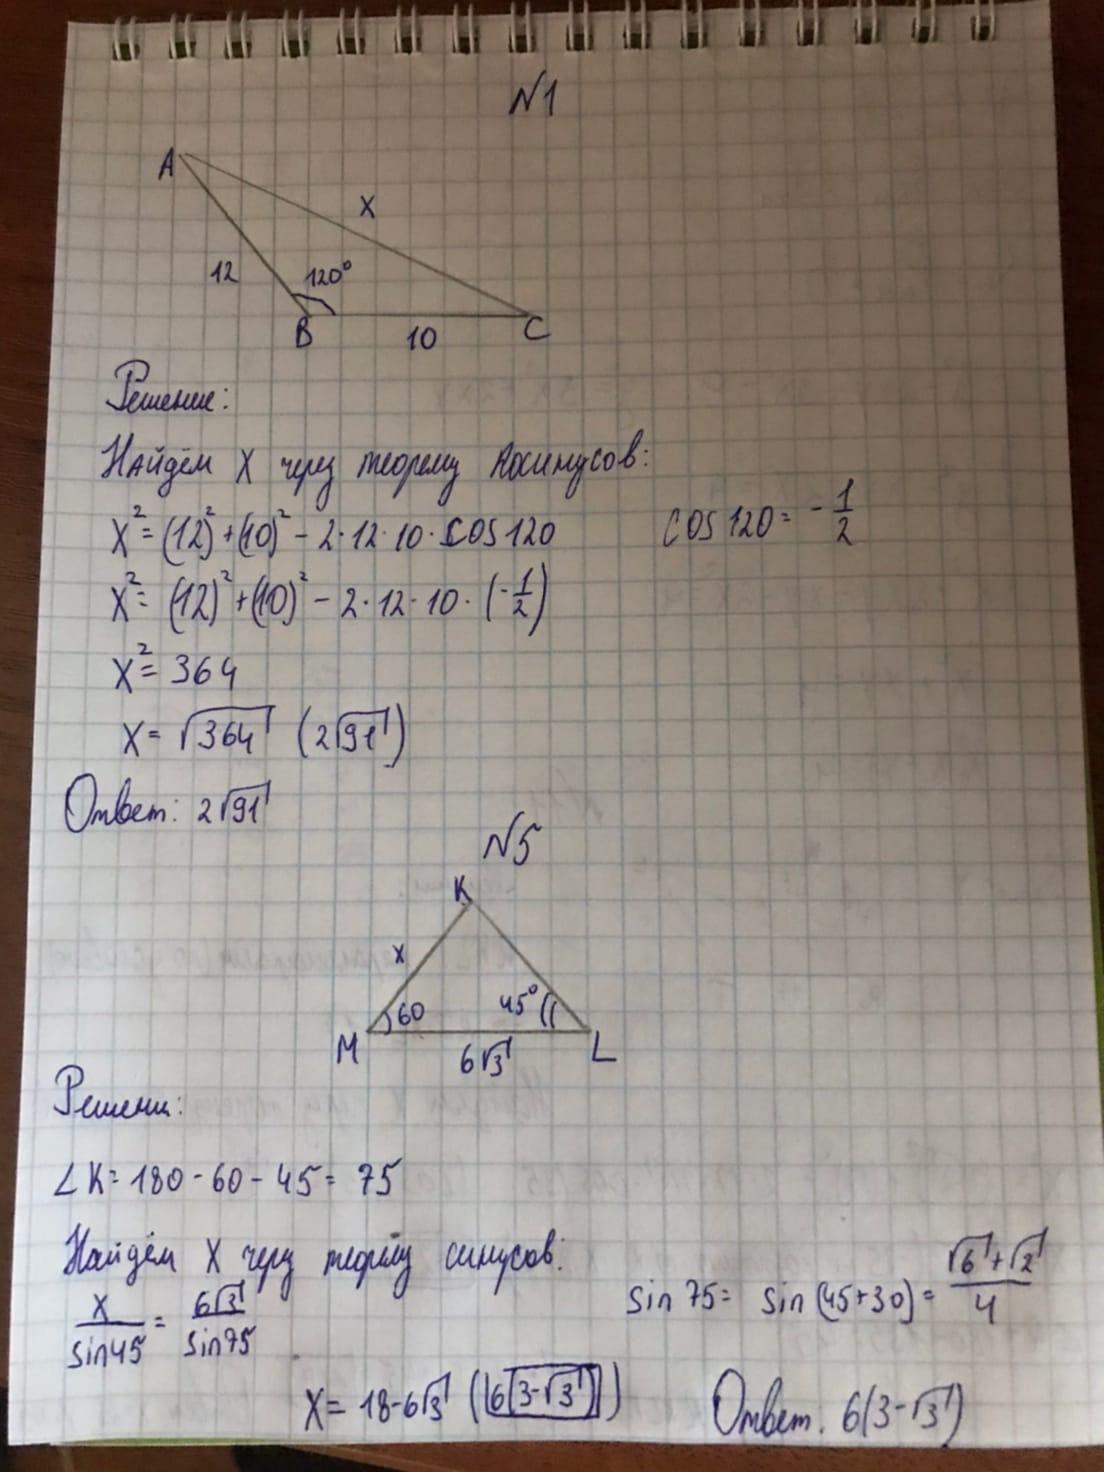 N1
A
x
12
120°
B
10
C
Решение:
Найдём X через теорему косинусов:
X² = (12)² + (10)² - 2·12·10·cos120
cos120 = -1/2
X² = (12)² + (10)² - 2·12·10·(-1/2)
X² = 364
X = √364 (2√91)
Ответ: 2√91
N5
K
x
60
45°
M
6√3
L
Решени:
∠K = 180 - 60 - 45 = 75
Найдём X через теорему синусов:
x/sin45 = 6√3/sin75
sin75 = sin(45+30) = (√6+√2)/4
X = 18-6√3 (6(3-√3))
Ответ. 6(3-√3)